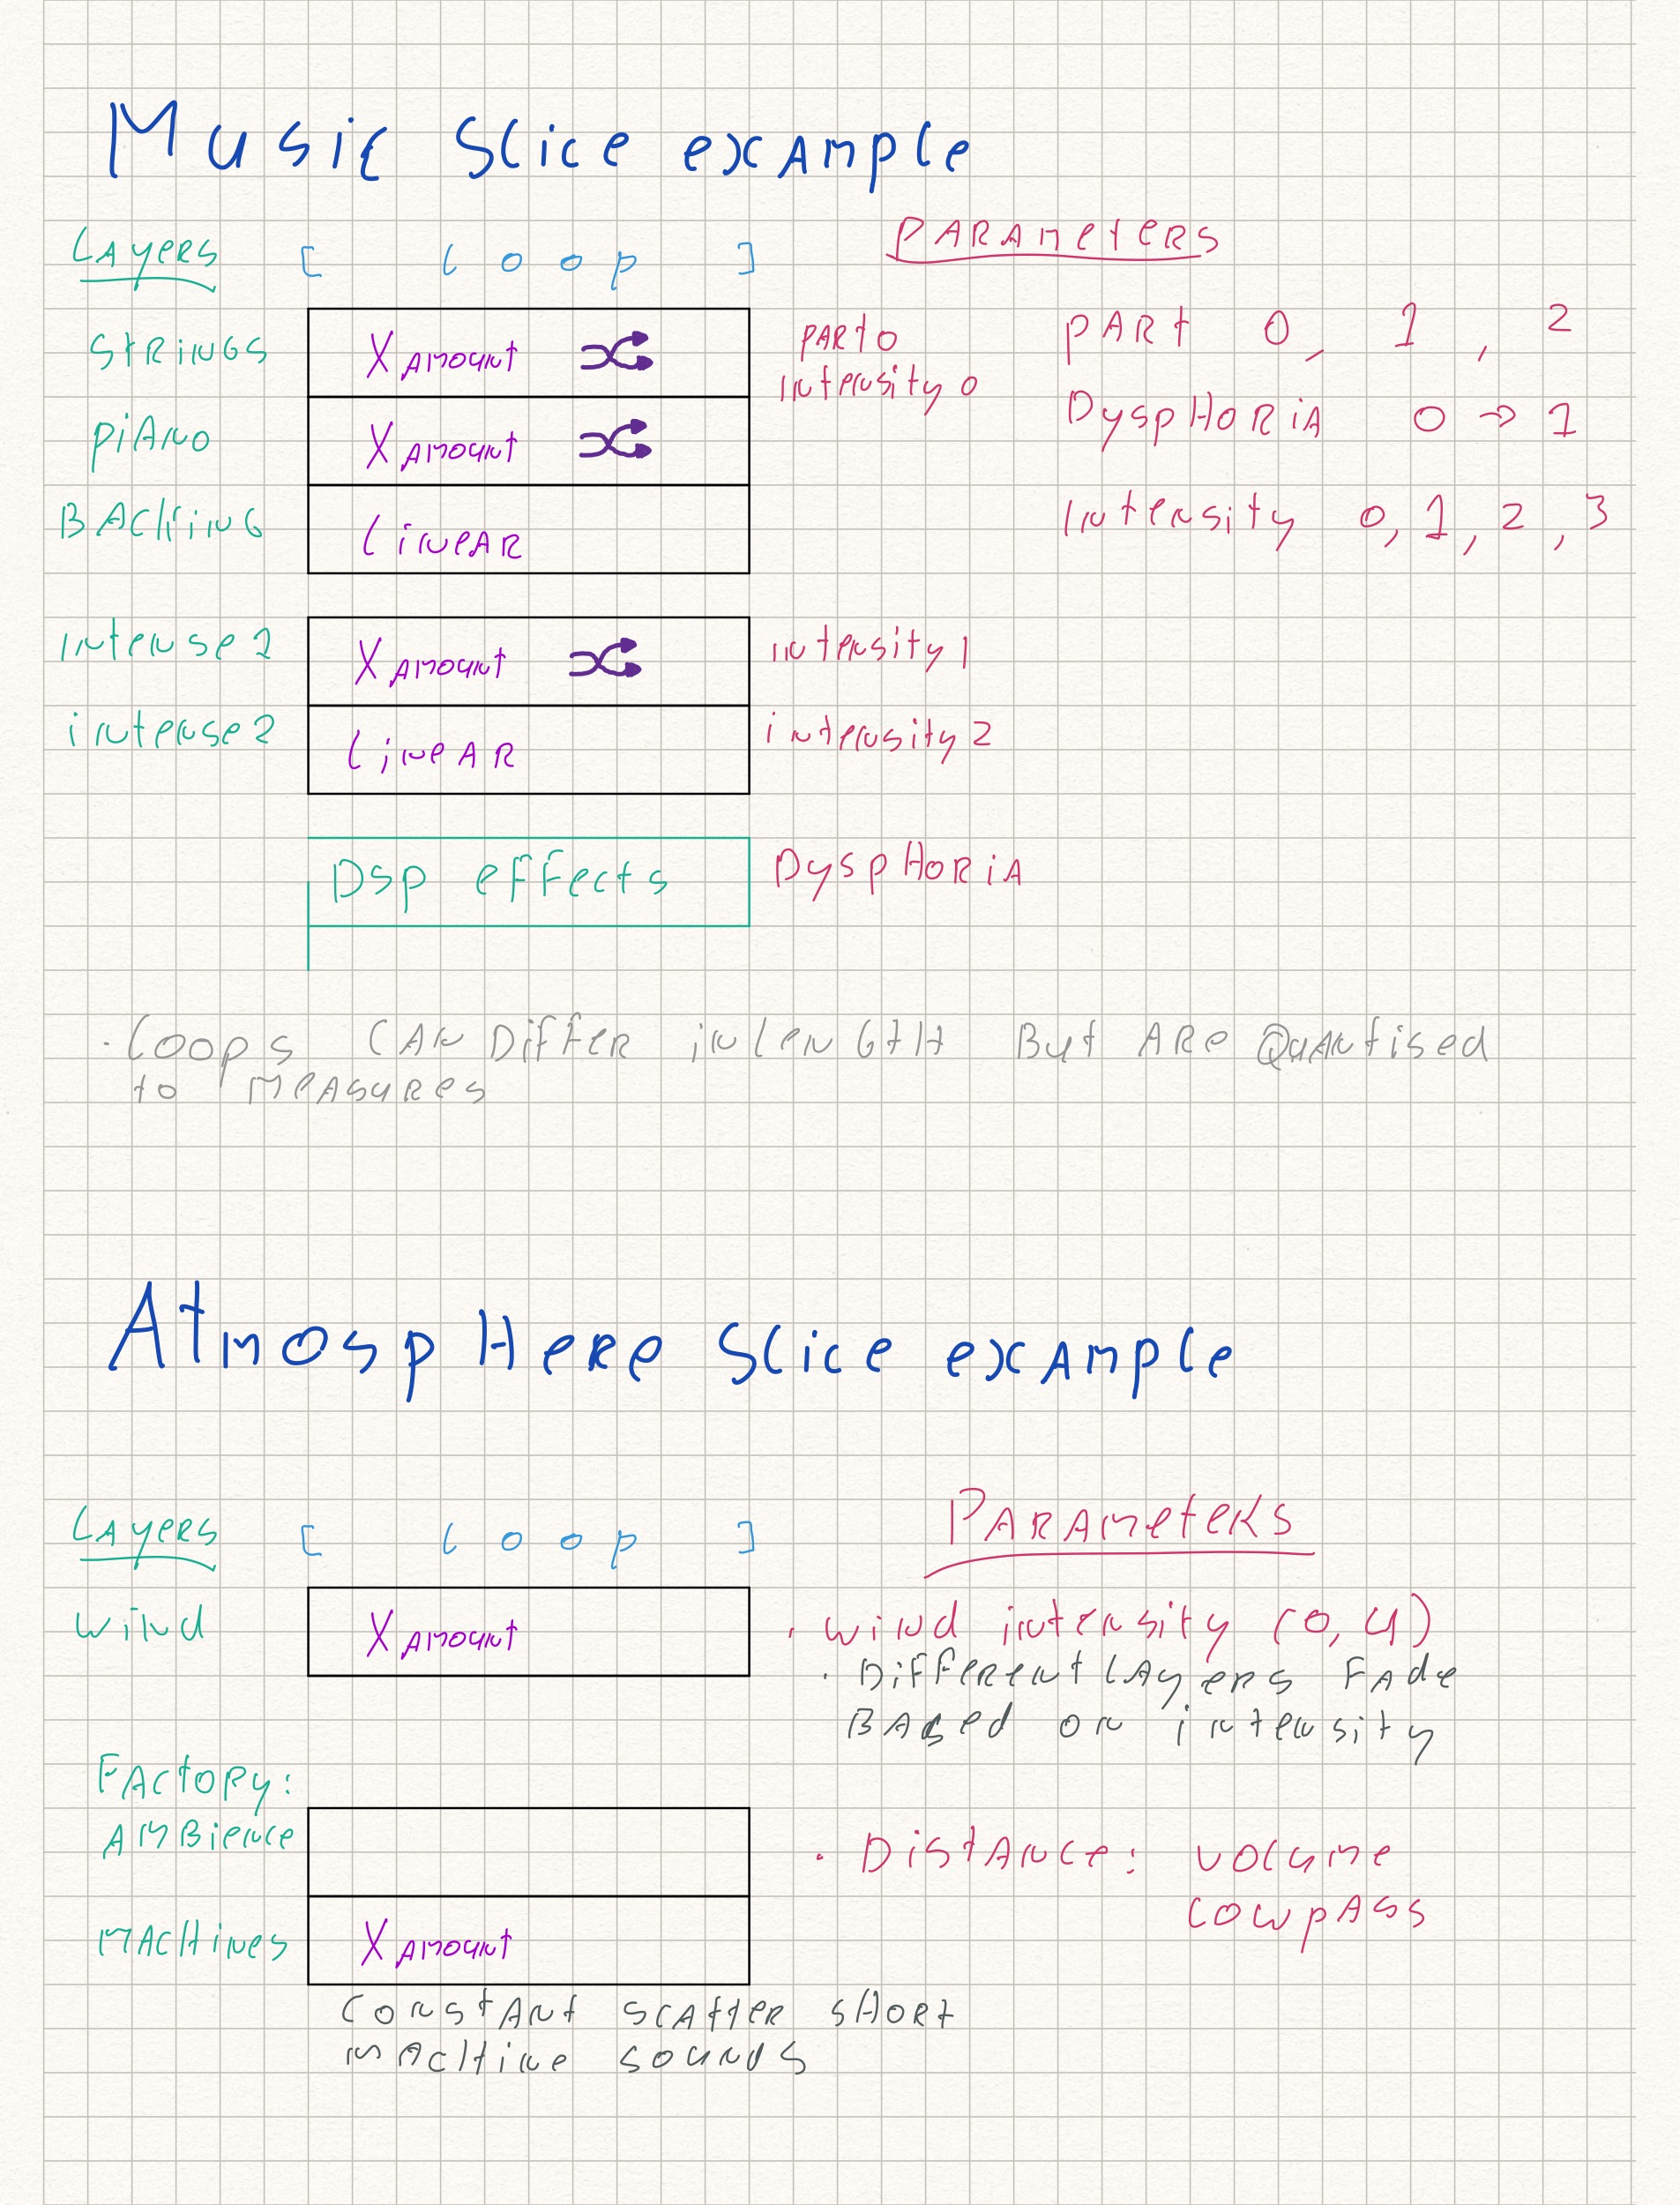 Music Slice example
Layers [ loop ] Parameters
Strings X Amount Part 0 Part 0, 1, 2
Intensity 0
Piano X Amount Dysphoria 0 → 1
Backing Linear Intensity 0, 1, 2, 3
Intense 1 X Amount Intensity 1
intense 2 Linear intensity 2
DSP effects Dysphoria
· Loops can differ in length but are Quantised
to measures
Atmosphere Slice example
Layers [ loop ] Parameters
wind X Amount · wind intensity (0, 4)
· Different layers fade
Based on intensity
Factory:
Ambience · Distance: volume
lowpass
Machines X Amount
Constant scatter short
machine sounds